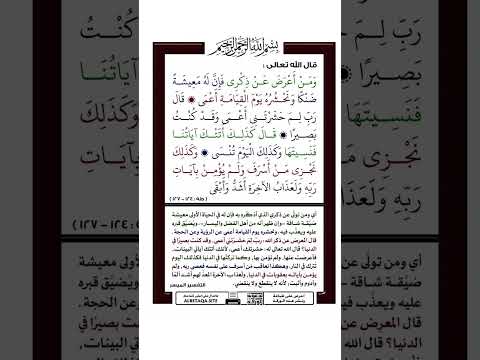 بِسْمِ اللَّهِ الرَّحْمَنِ الرَّحِيمِ
قال الله تعالى :
وَمَنْ أَعْرَضَ عَنْ ذِكْرِي فَإِنَّ لَهُ مَعِيشَةً
ضَنْكًا وَنَحْشُرُهُ يَوْمَ الْقِيَامَةِ أَعْمَى ۝ قَالَ
رَبِّ لِمَ حَشَرْتَنِي أَعْمَى وَقَدْ كُنْتُ
بَصِيرًا ۝ قَالَ كَذَلِكَ أَتَتْكَ آيَاتُنَا
فَنَسِيتَهَا وَكَذَلِكَ الْيَوْمَ تُنْسَى ۝ وَكَذَلِكَ
نَجْزِي مَنْ أَسْرَفَ وَلَمْ يُؤْمِنْ بِآيَاتِ
رَبِّهِ وَلَعَذَابُ الْآخِرَةِ أَشَدُّ وَأَبْقَى
( طه : ١٢٤ - ١٢٧ )
أي ومن تولَّى عن ذكري الذي أذكِّره به فإن له في الحياة الأولى معيشة
ضيِّقة شاقة -وإن ظهر أنه من أهل الفضل واليسار-، ويُضيَّق قبره
عليه ويعذَّب فيه، ونحشره يوم القيامة أعمى عن الرؤية وعن الحجة.
قال المعرِض عن ذكر الله: ربِّ لِمَ حَشَرْتني أعمى، وقد كنت بصيرًا في
الدنيا؟ قال الله تعالى له: حشرتك أعمى، لأنك أتتك آياتي البينات،
فأعرضت عنها، ولم تؤمن بها، وكما تركتَها في الدنيا فكذلك اليوم
تُترك في النار. وهكذا نعاقب من أسرف على نفسه فعصى ربه، ولم
يؤمن بآياته بعقوبات في الدنيا، ولعذاب الآخرة المعدُّ لهم أشد ألمًا
وأدوم وأثبت، لأنه لا ينقطع ولا ينقضي.
التفسير الميسر
ALBETAQA.SITE
احرص على طباعة
ونشر هذه البطاقة